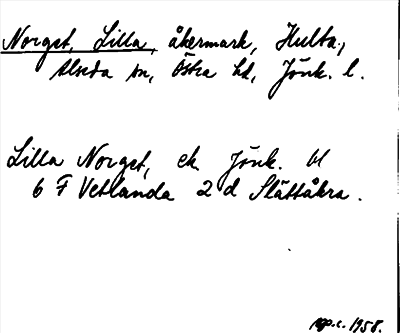 Norget, Lilla, åkermark, Hulta,
Alseda sn, Östra hd, Jönk. l.
Lilla Norget, ek. Jönk. bl
6 F Vetlanda 2 d Slättåkra.
1958.